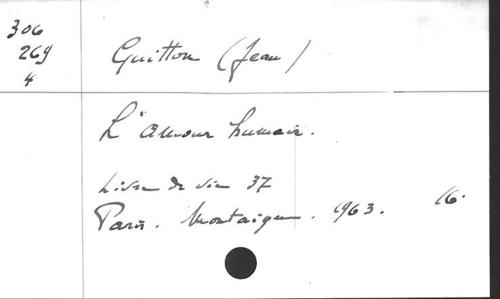 306
269
4
Guitton (Jean)
L'amour humain.
Livre de vie 37
Paris. Montaigne. 1963. 16.